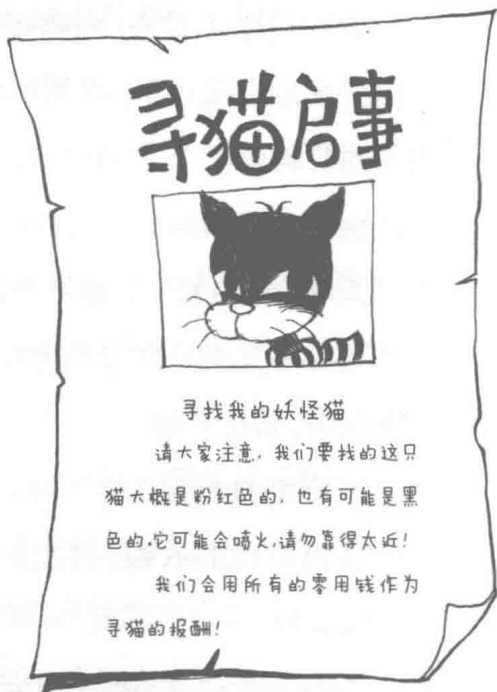 寻猫启事
寻找我的妖怪猫
请大家注意，我们要找的这只
猫大概是粉红色的，也有可能是黑
色的，它可能会喷火，请勿靠得太近！
我们会用所有的零用钱作为
寻猫的报酬！